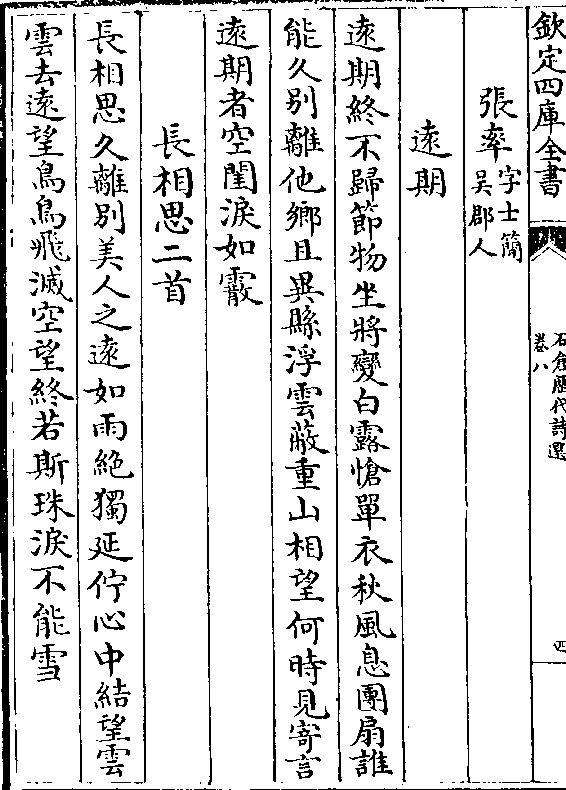 欽定四庫全書
石倉歷代詩選
卷八
四
張率字士簡
吳郡人
遠期
遠期終不歸節物坐將變白露愴單衣秋風息團扇誰
能久別離他鄉且異縣浮雲蔽重山相望何時見寄言
遠期者空閨淚如霰
長相思二首
長相思久離別美人之遠如雨絶獨延佇心中結望雲
雲去遠望鳥鳥飛滅空望終若斯珠淚不能雪